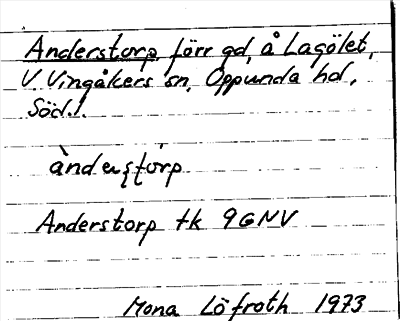 Anderstorp, förr gd, å Lagölet,
V Vingåkers sn, Oppunda hd,
Söd.l.
Anderstorp tk 9GNV
Mona Löfroth 1973